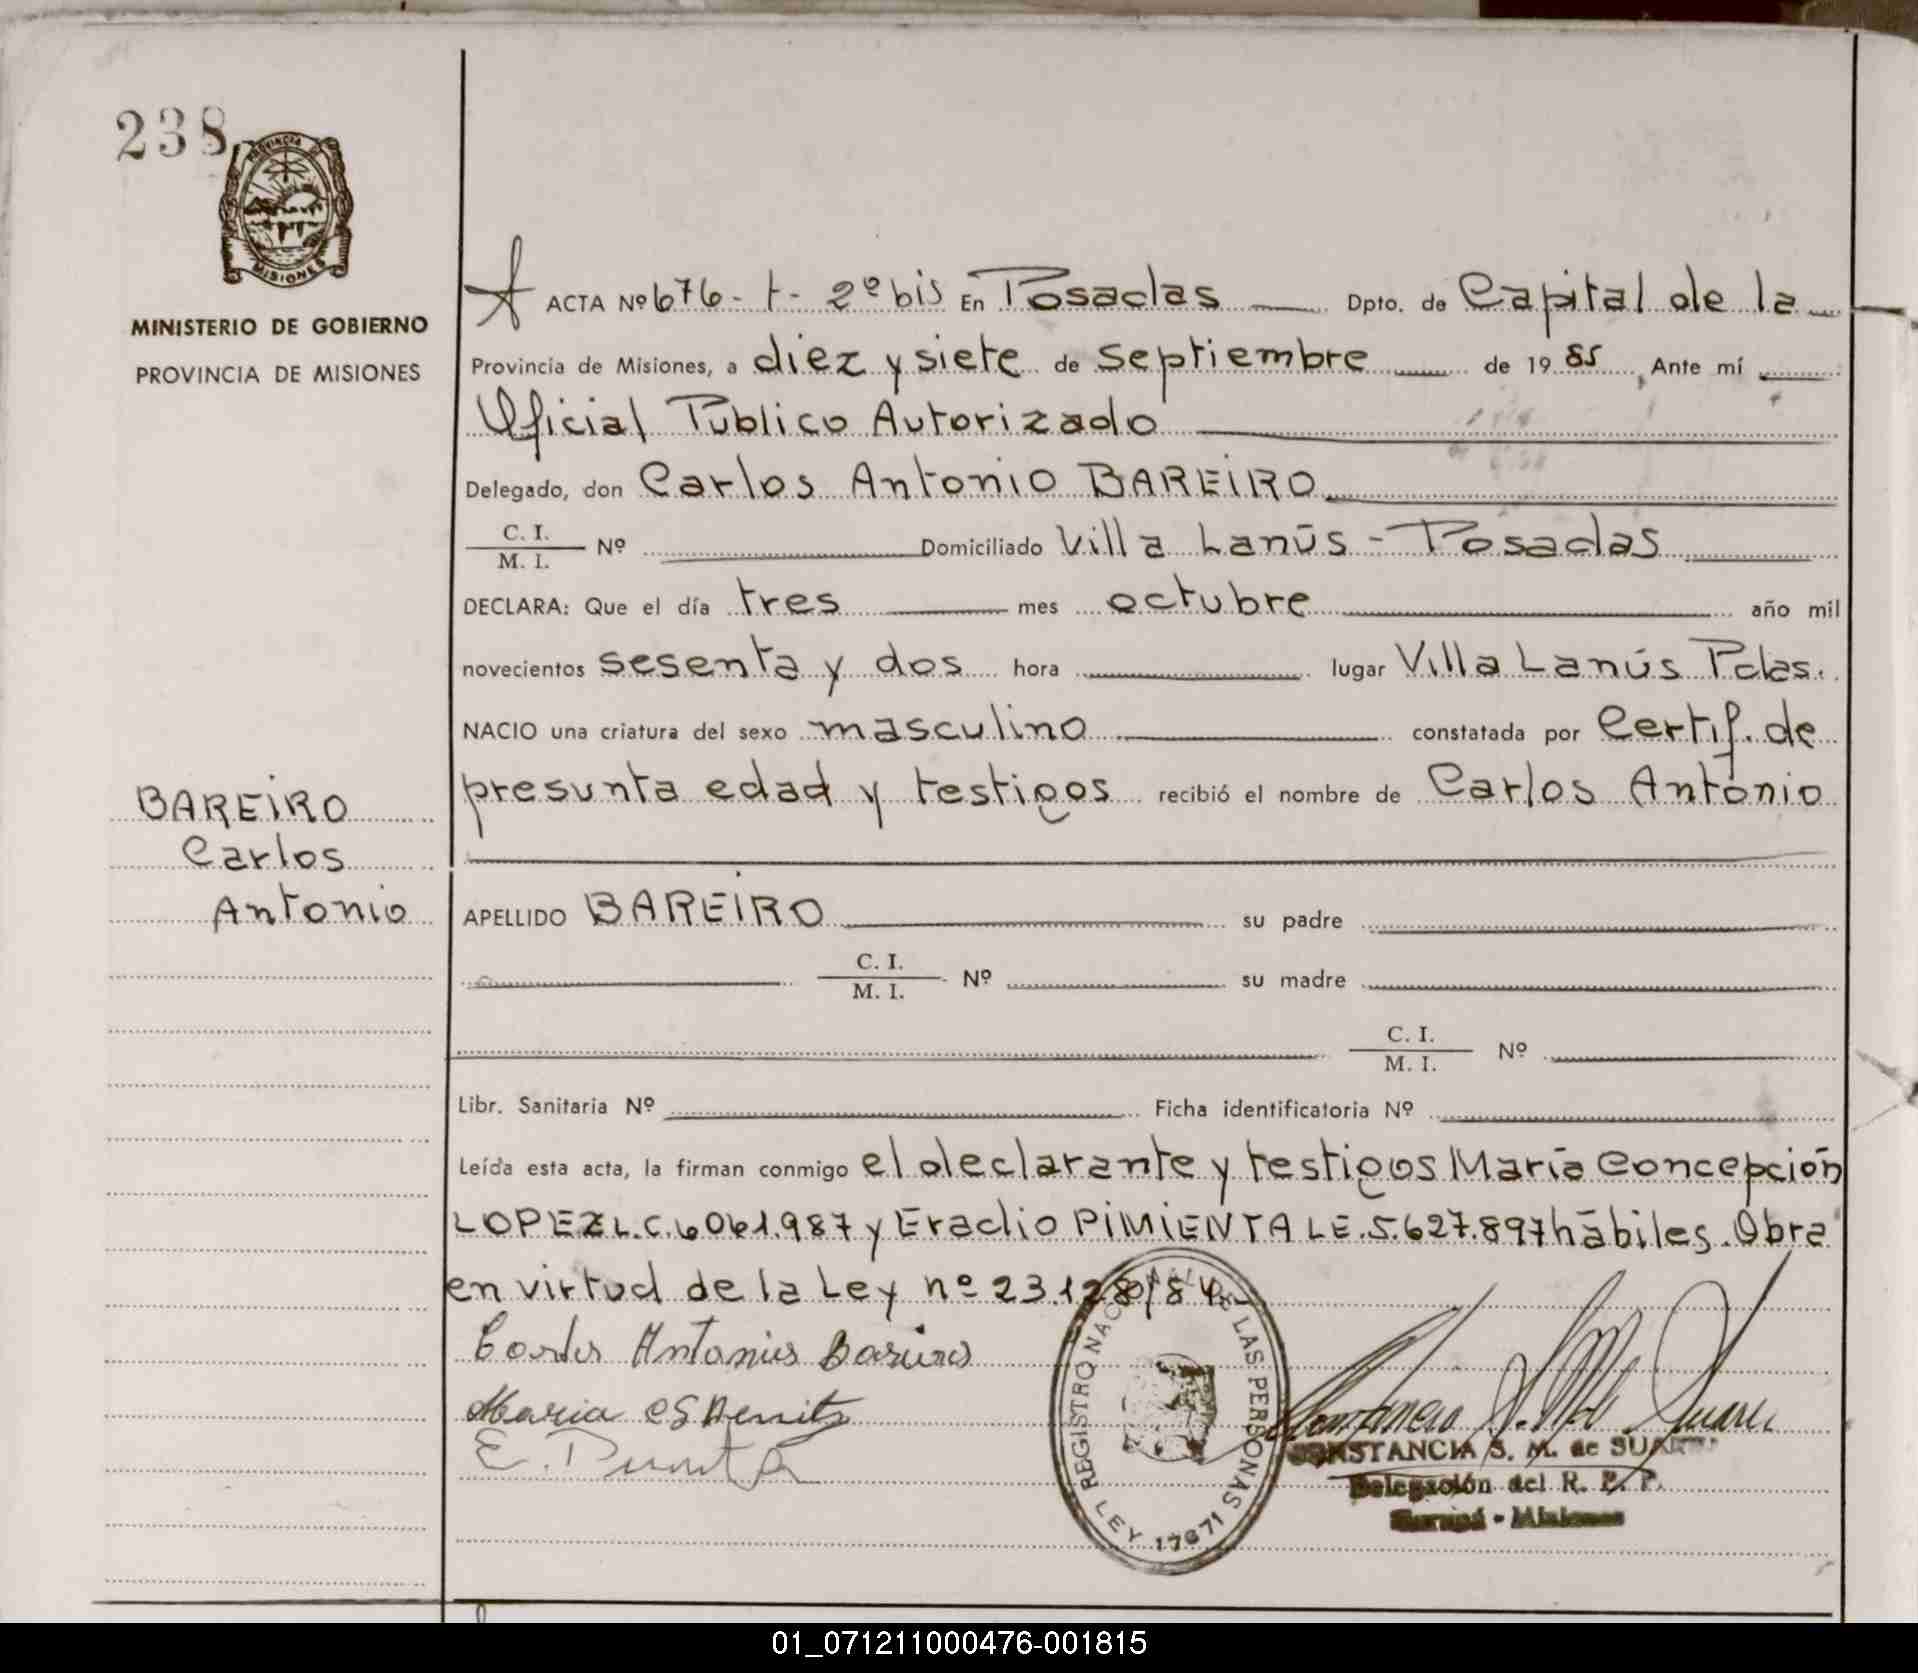 238
PROVINCIA DE
MISIONES
MINISTERIO DE GOBIERNO
PROVINCIA DE MISIONES
ACTA Nº 676 - t - 2º bis En Posadas Dpto. de Capital de la
Provincia de Misiones, a diez y siete de septiembre de 1985, Ante mí
Oficial Público Autorizado
Delegado, don Carlos Antonio BAREIRO
C. I.
M. I. Nº Domiciliado Villa Lanús - Posadas
DECLARA: Que el día tres mes octubre año mil
novecientos sesenta y dos hora lugar Villa Lanús Pdas.
NACIO una criatura del sexo masculino constatada por Certif. de
presunta edad y testigos recibió el nombre de Carlos Antonio
BAREIRO
Carlos
Antonio
APELLIDO BAREIRO su padre
C. I.
M. I. Nº su madre
C. I.
M. I. Nº
Libr. Sanitaria Nº Ficha identificatoria Nº
Leída esta acta, la firman conmigo el declarante y testigos María Concepción
LOPEZ L.C. 6061.987 y Eradio PIMIENTA LE. 5.627.897 hábiles. Obra
en virtud de la Ley nº 23.128/84.-
Antonio
Maria
E.
REGISTRO NACIONAL DE LAS PERSONAS
LEY 17671
CONSTANCIA S. M. de SUAREZ
Delegación del R. P. P.
Garupá - Misiones
01_071211000476-001815